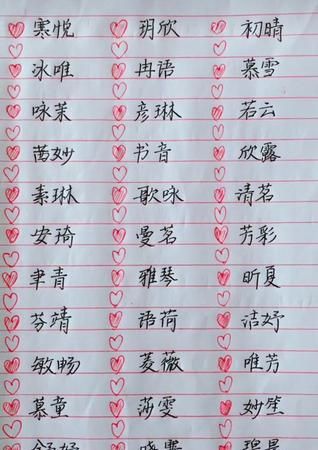 寒悦 玥欣 初晴
冰唯 冉语 慕雪
咏茉 彦琳 若云
茵妙 书音 欣露
素琳 歌咏 清茗
安琦 曼茗 芳彩
聿青 雅琴 昕夏
芬靖 语荷 洁妤
敏畅 菱薇 唯芳
慕童 莎雯 妙笙